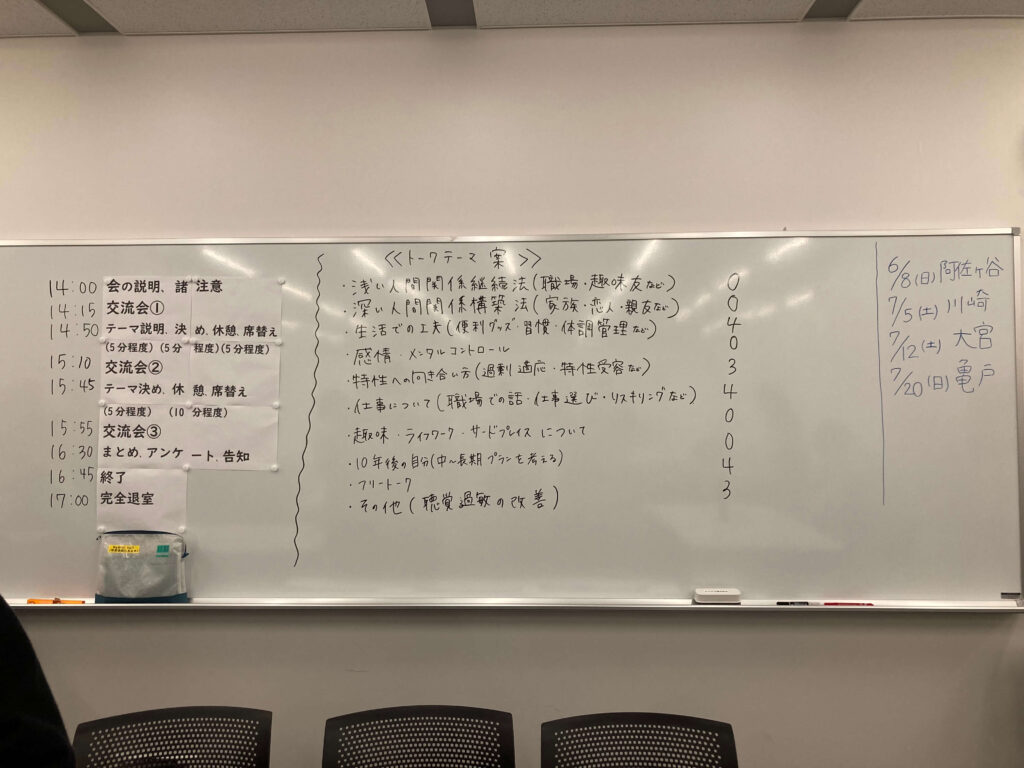 14:00 会の説明、諸注意
14:15 交流会①
14:50 テーマ説明、決め、休憩、席替え
(5分程度)(5分程度)(5分程度)
15:10 交流会②
15:45 テーマ決め、休憩、席替え
(5分程度) (10分程度)
15:55 交流会③
16:30 まとめ、アンケート、告知
16:45 終了
17:00 完全退室
≪トークテーマ 案≫
・浅い人間関係継続法(職場・趣味友など) 0
・深い人間関係構築法(家族・恋人・親友など) 0
・生活での工夫(便利グッズ・習慣・体調管理など) 4
・感情・メンタルコントロール 0
・特性への向き合い方(過剰適応・特性受容など) 3
・仕事について(職場での話・仕事選び・リスキリングなど) 4
・趣味・ライフワーク・サードプレイスについて 0
・10年後の自分(中〜長期プランを考える) 0
・フリートーク 4
・その他(聴覚過敏の改善) 3
6/8(日)阿佐ヶ谷
7/5(土)川崎
7/12(土)大宮
7/20(日)亀戸